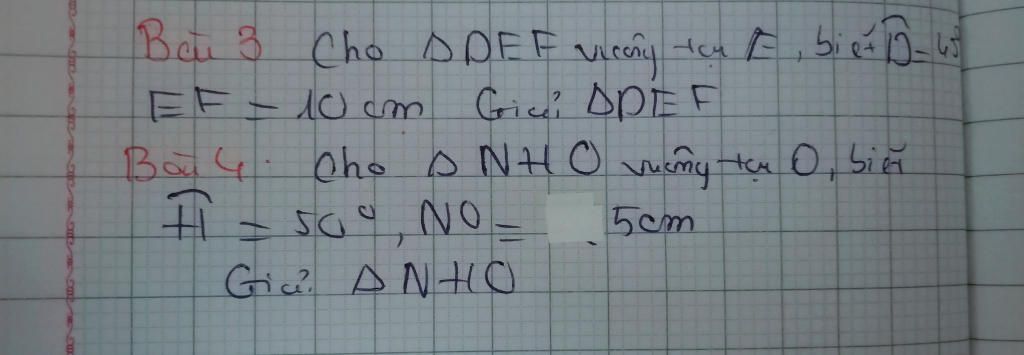 Bài 3 Cho Δ DEF vuông tại E, biết D̂ = 45°
EF = 10 cm Giải ΔDEF
Bài 4. Cho Δ NHO vuông tại O, biết
Ĥ = 50°, NO = 5cm
Giải Δ NHO